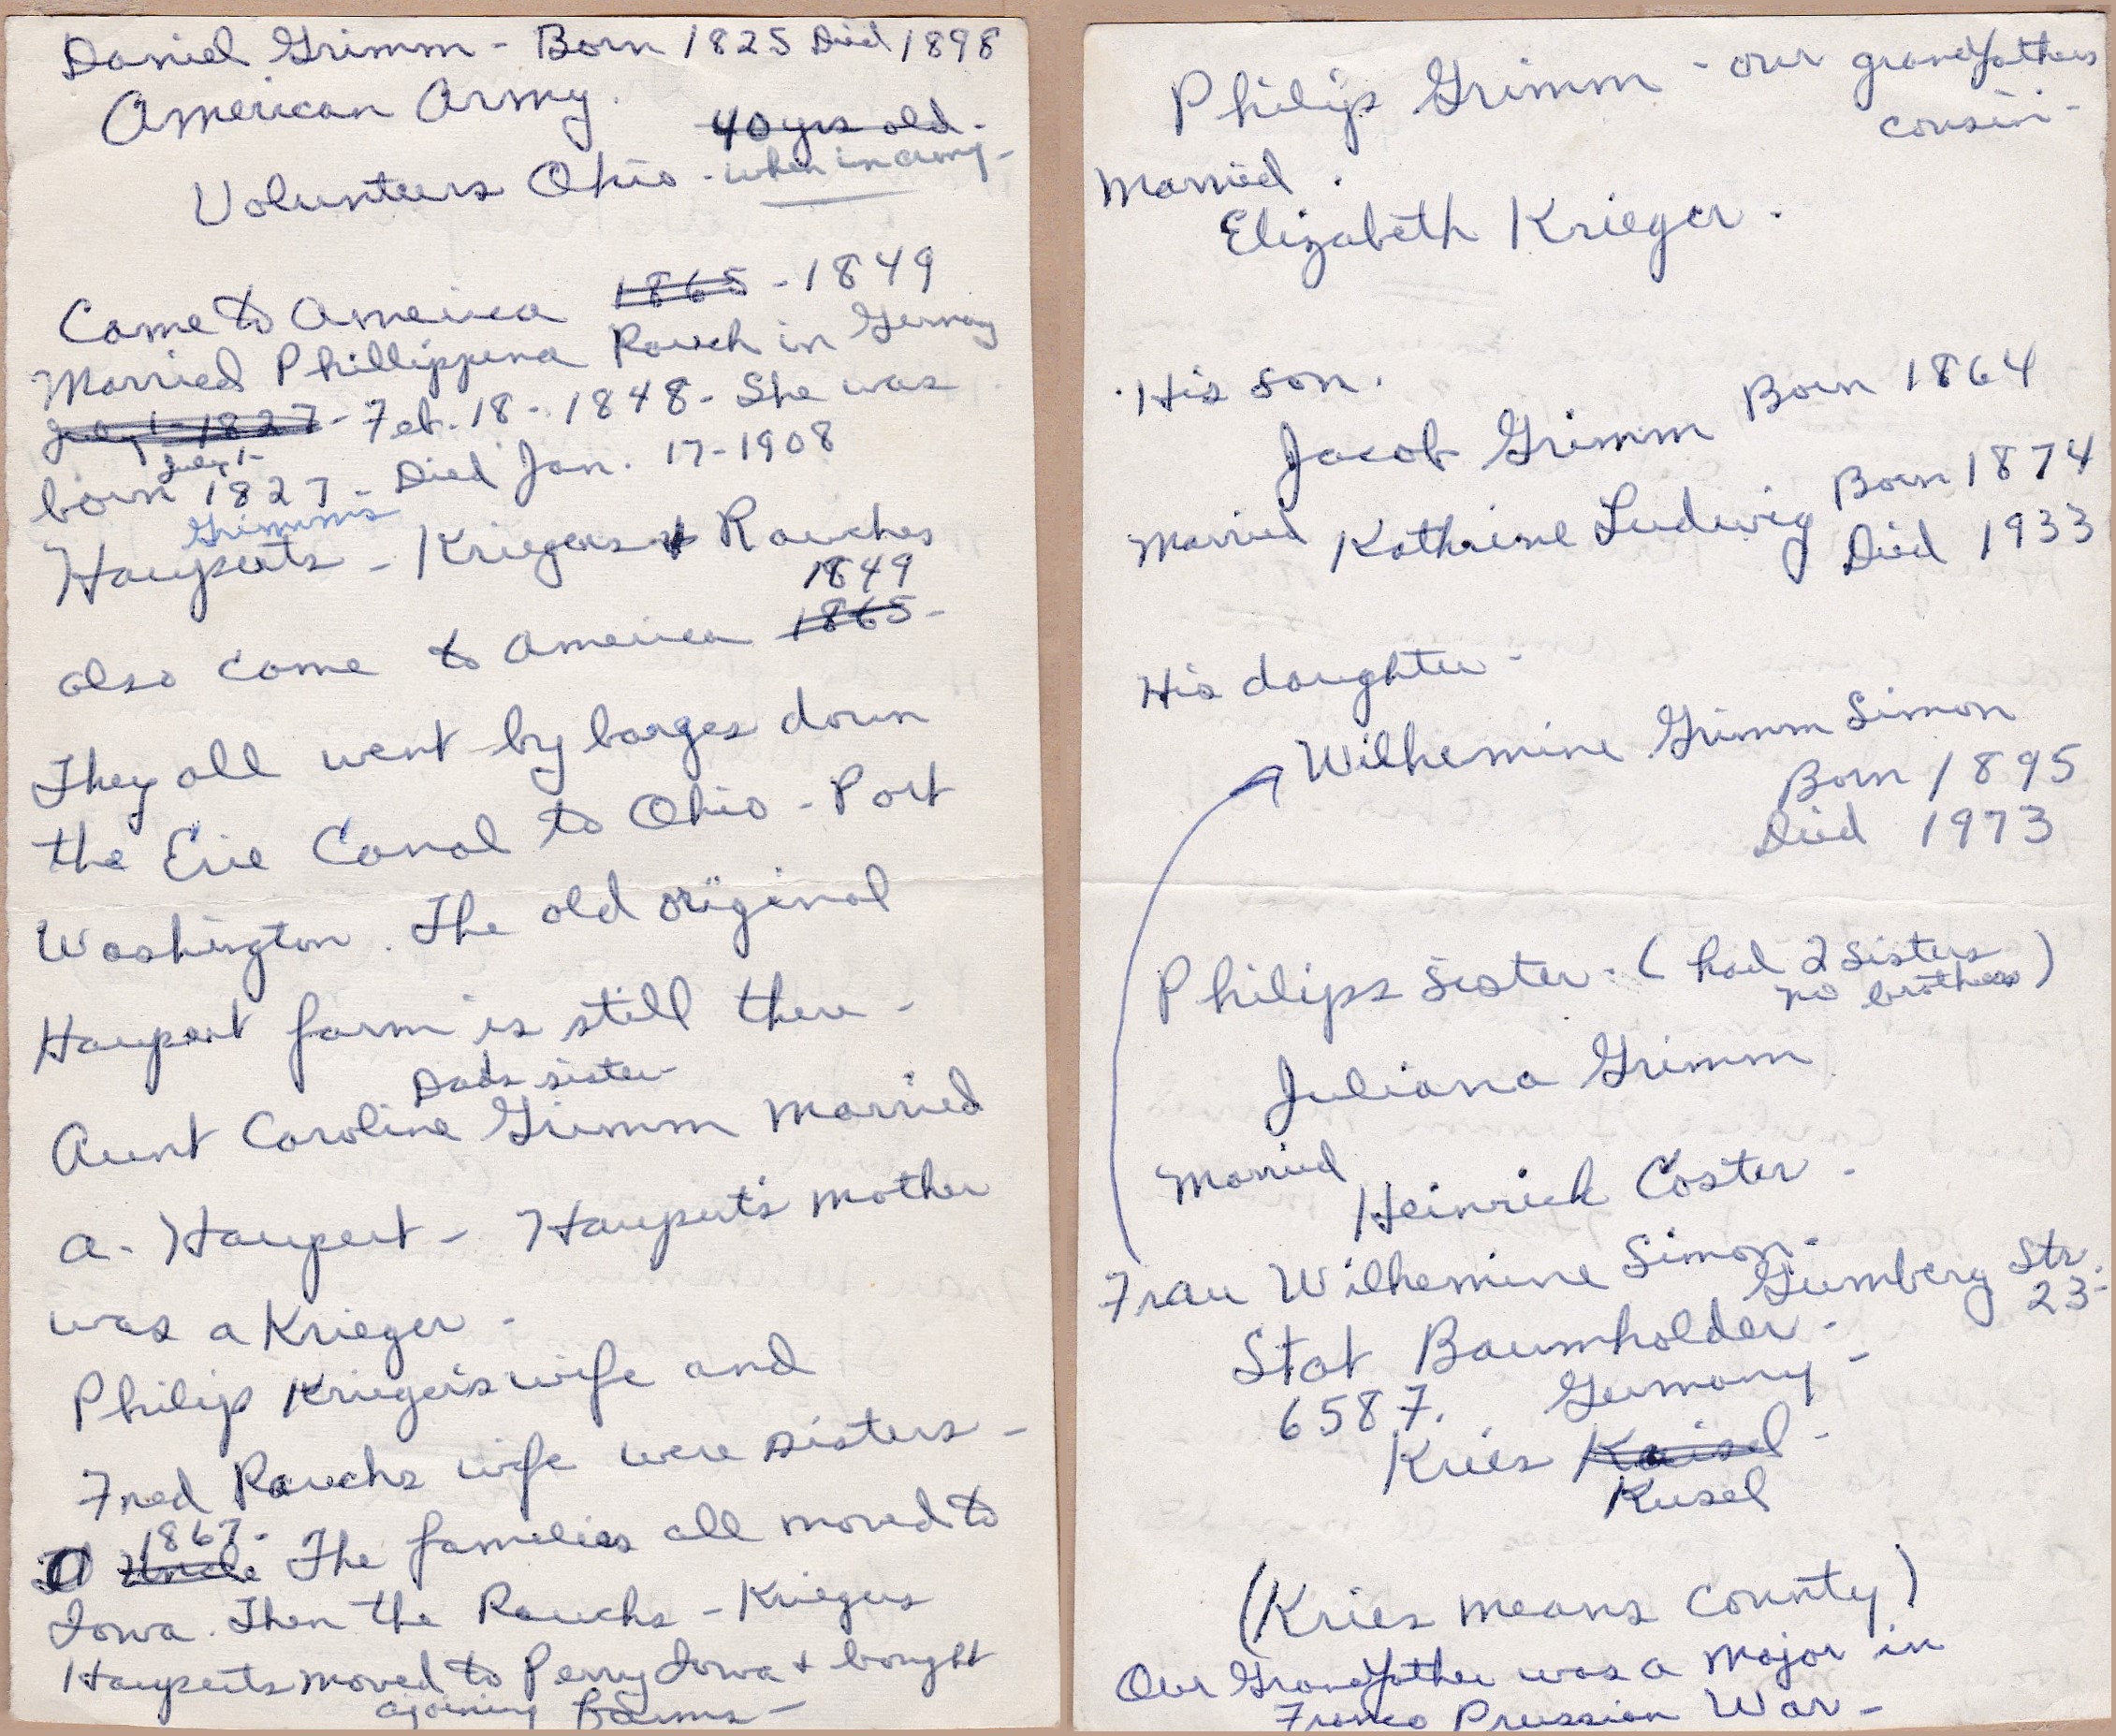 Daniel Grimm - Born 1825 Died 1898
American Army.
40 yrs old.
Volunteers Ohio - when in army -
Came to America 1865 - 1849
Married Phillippena Rauch in Germany
July 1 - 1827 - Feb. 18 - 1848 - She was
July 1 -
born 1827 - Died Jan. 17 - 1908
Grimms
Hauperts - Kriegers & Rauches
1849
also came to America 1865 -
They all went by barges down
the Erie Canal to Ohio - Port
Washington. The old original
Haupert farm is still there -
Dads sister
Aunt Caroline Grimm married
a. Haupert - Haupert's mother
was a Krieger -
Philip Krieger's wife and
Fred Rauchs wife were sisters -
1867 -
Uncle The families all moved to
Iowa. Then the Rauchs - Kriegers
Hauperts moved to Perry Iowa & bought
ajoining farms -
Philip Grimm - our grandfathers
cousin -
Married.
Elizabeth Krieger.
His son.
Jacob Grimm Born 1864
Married Kathrine Ludwig Born 1874
Died 1933
His daughter -
Wilhemine Grimm Simon
Born 1895
Died 1973
Philips sister. (had 2 sisters
no brothers)
Juliana Grimm
Married
Heinrich Coster.
Frau Wilhemine Simon -
Gumberg Str.
23 -
Stat Baumholder.
6587. Germany -
Kries Kaisel -
Kusel
(Kries means county)
Our Grandfather was a Major in
Franco Prussian War -